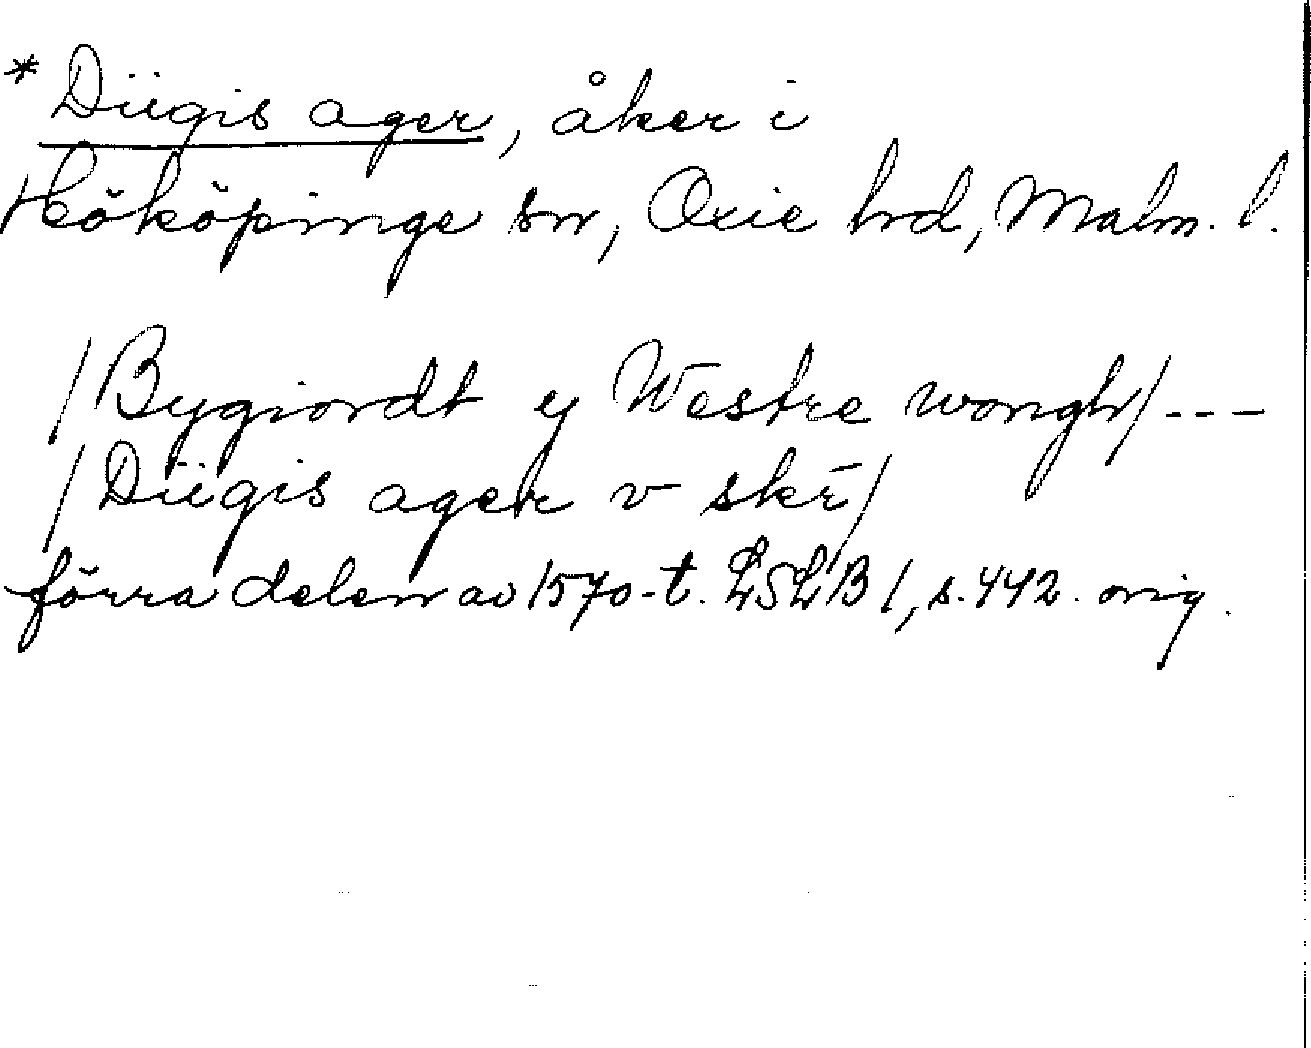 * Diigis ager, åker i
Hököpinge sn, Oxie hd, Malm. l.
/Bygiordt ij Westre wongh/ ---
/Diigis ager v skē/
förra delen av 1570-t. LSLB 1, s. 442. orig.